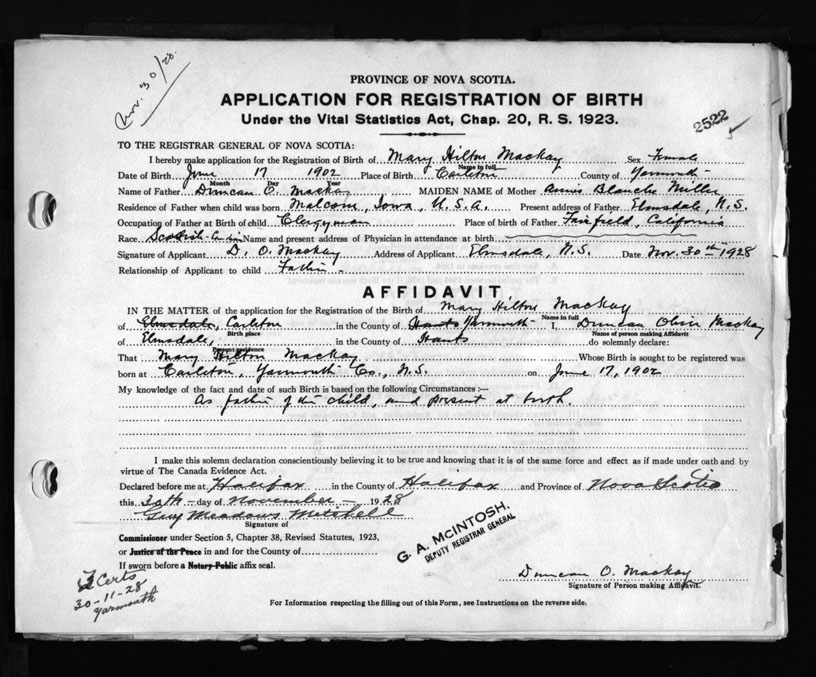 Nov. 30/28.
PROVINCE OF NOVA SCOTIA.
APPLICATION FOR REGISTRATION OF BIRTH
Under the Vital Statistics Act, Chap. 20, R. S. 1923.
2522
TO THE REGISTRAR GENERAL OF NOVA SCOTIA:
I hereby make application for the Registration of Birth of Mary Hilton Mackay Sex Female
Name in full
Date of Birth June 17 1902 Place of Birth Carleton County of Yarmouth
Month Day Year
Name of Father Duncan O. Mackay MAIDEN NAME of Mother Blanche Miller
Residence of Father when child was born Malcom, Iowa, U.S.A. Present address of Father Elmsdale, N.S.
Occupation of Father at Birth of child Clergyman Place of birth of Father Fairfield, California
Race Scotish Name and present address of Physician in attendance at birth
Signature of Applicant D. O. Mackay Address of Applicant Elmsdale, N.S. Date Nov. 30th 1928
Relationship of Applicant to child Father
AFFIDAVIT
IN THE MATTER of the application for the Registration of the Birth of Mary Hilton Mackay
Name in full
of Elmsdale, Carleton in the County of Hants Yarmouth I, Duncan Oliver Mackay
Birth place Name of person making Affidavit
of Elmsdale, in the County of Hants do solemnly declare:
Present residence
That Mary Hilton Mackay Whose Birth is sought to be registered was
born at Carleton, Yarmouth Co., N.S. on June 17, 1902
My knowledge of the fact and date of such Birth is based on the following Circumstances :—
As father of the child, and present at birth.
I make this solemn declaration conscientiously believing it to be true and knowing that it is of the same force and effect as if made under oath and by
virtue of The Canada Evidence Act.
Declared before me at Halifax in the County of Halifax and Province of Nova Scotia
this 30th day of November 1928
Guy Meadows Mitchell
Signature of
Commissioner under Section 5, Chapter 38, Revised Statutes, 1923,
or Justice of the Peace in and for the County of
If sworn before a Notary Public affix seal.
G. A. McINTOSH,
DEPUTY REGISTRAR GENERAL
Duncan O. Mackay
Signature of Person making Affidavit.
Certs
30-11-28
Yarmouth
For Information respecting the filling out of this Form, see Instructions on the reverse side.